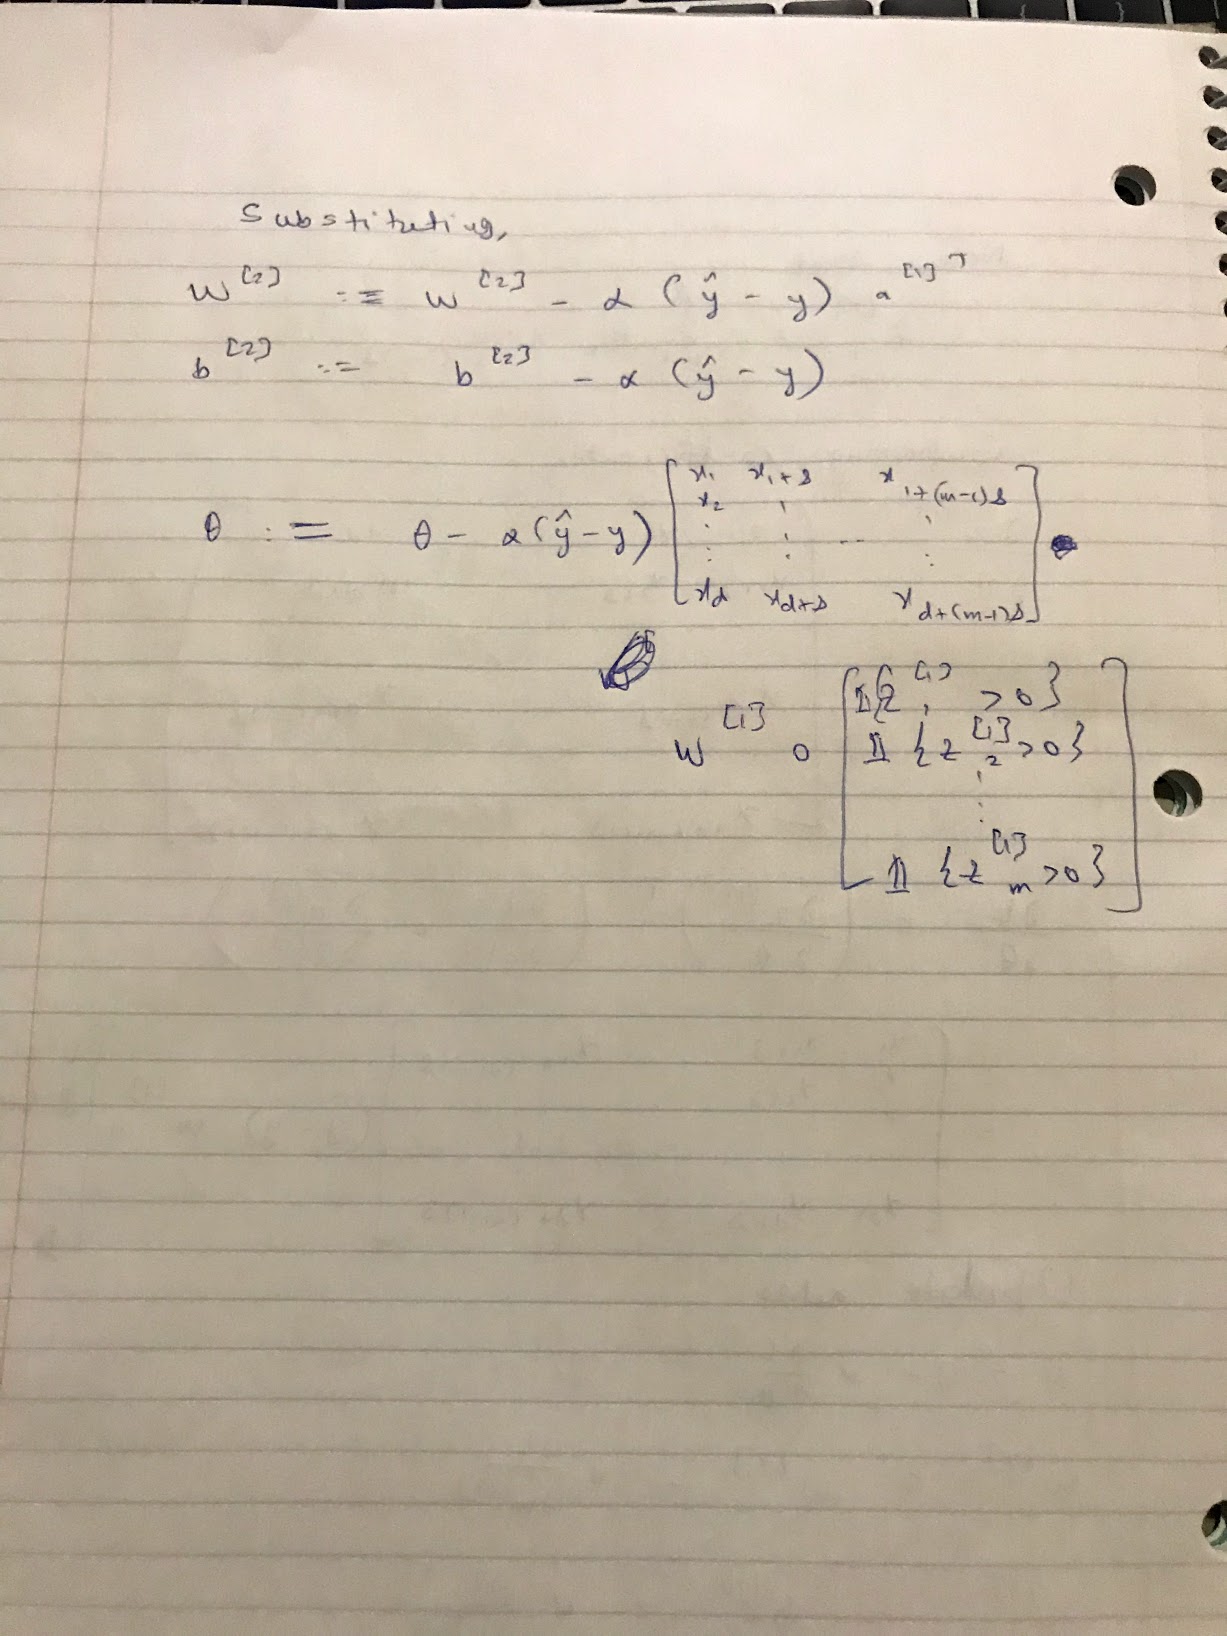 Substituting,
W^[2] := W^[2] - α (ŷ - y) a^[1]^T
b^[2] := b^[2] - α (ŷ - y)
θ := θ - α (ŷ - y) [ x_1 x_1+s x_1+(m-1)s
x_2 ⋮ ⋮
⋮ ⋮ ... ⋮
x_d x_d+s x_d+(m-1)s ]
W^[1] ∘ [ 𝟙{z_1^[1] > 0}
𝟙{z_2^[1] > 0}
⋮
𝟙{z_m^[1] > 0} ]